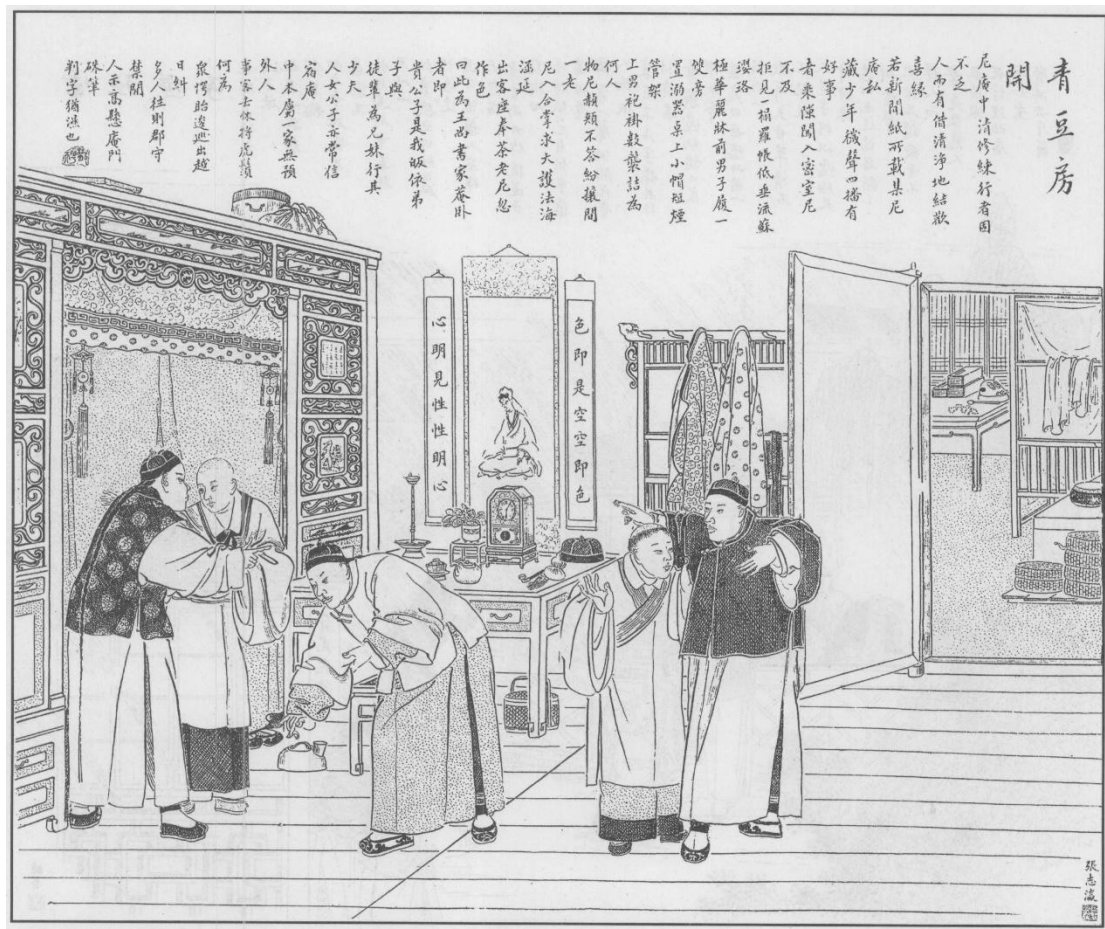 青豆房
開
尼庵中清修練行者固
不乏
人而有借清淨地結歡
喜緣
若新聞紙所載某尼
庵私
藏少年穢聲四播有
好事
者乘隙闖入密室尼
不及
拒見一榻羅帳低垂流蘇
瓔珞
極華麗牀前男子履一
雙旁
置溺器桌上小帽短煙
管架
上男袍褂數襲詰為
何人
物尼赬頰不答紛擾間
一老
尼入合掌求大護法海
涵延
出客座奉茶老尼忽
作色
曰此為王尚書家菴卧
者即
貴公子是我皈依弟
子與
徒輩為兄妹行其
少夫
人女公子亦常信
宿庵
中本屬一家無預
外人
事客去休捋虎鬚
何為
衆愕眙逡巡出越
日糾
多人往則郡守
禁閉
人示高懸庵門
硃筆
判字猶濕也
色即是空空即色
心明見性性明心
張志瀛